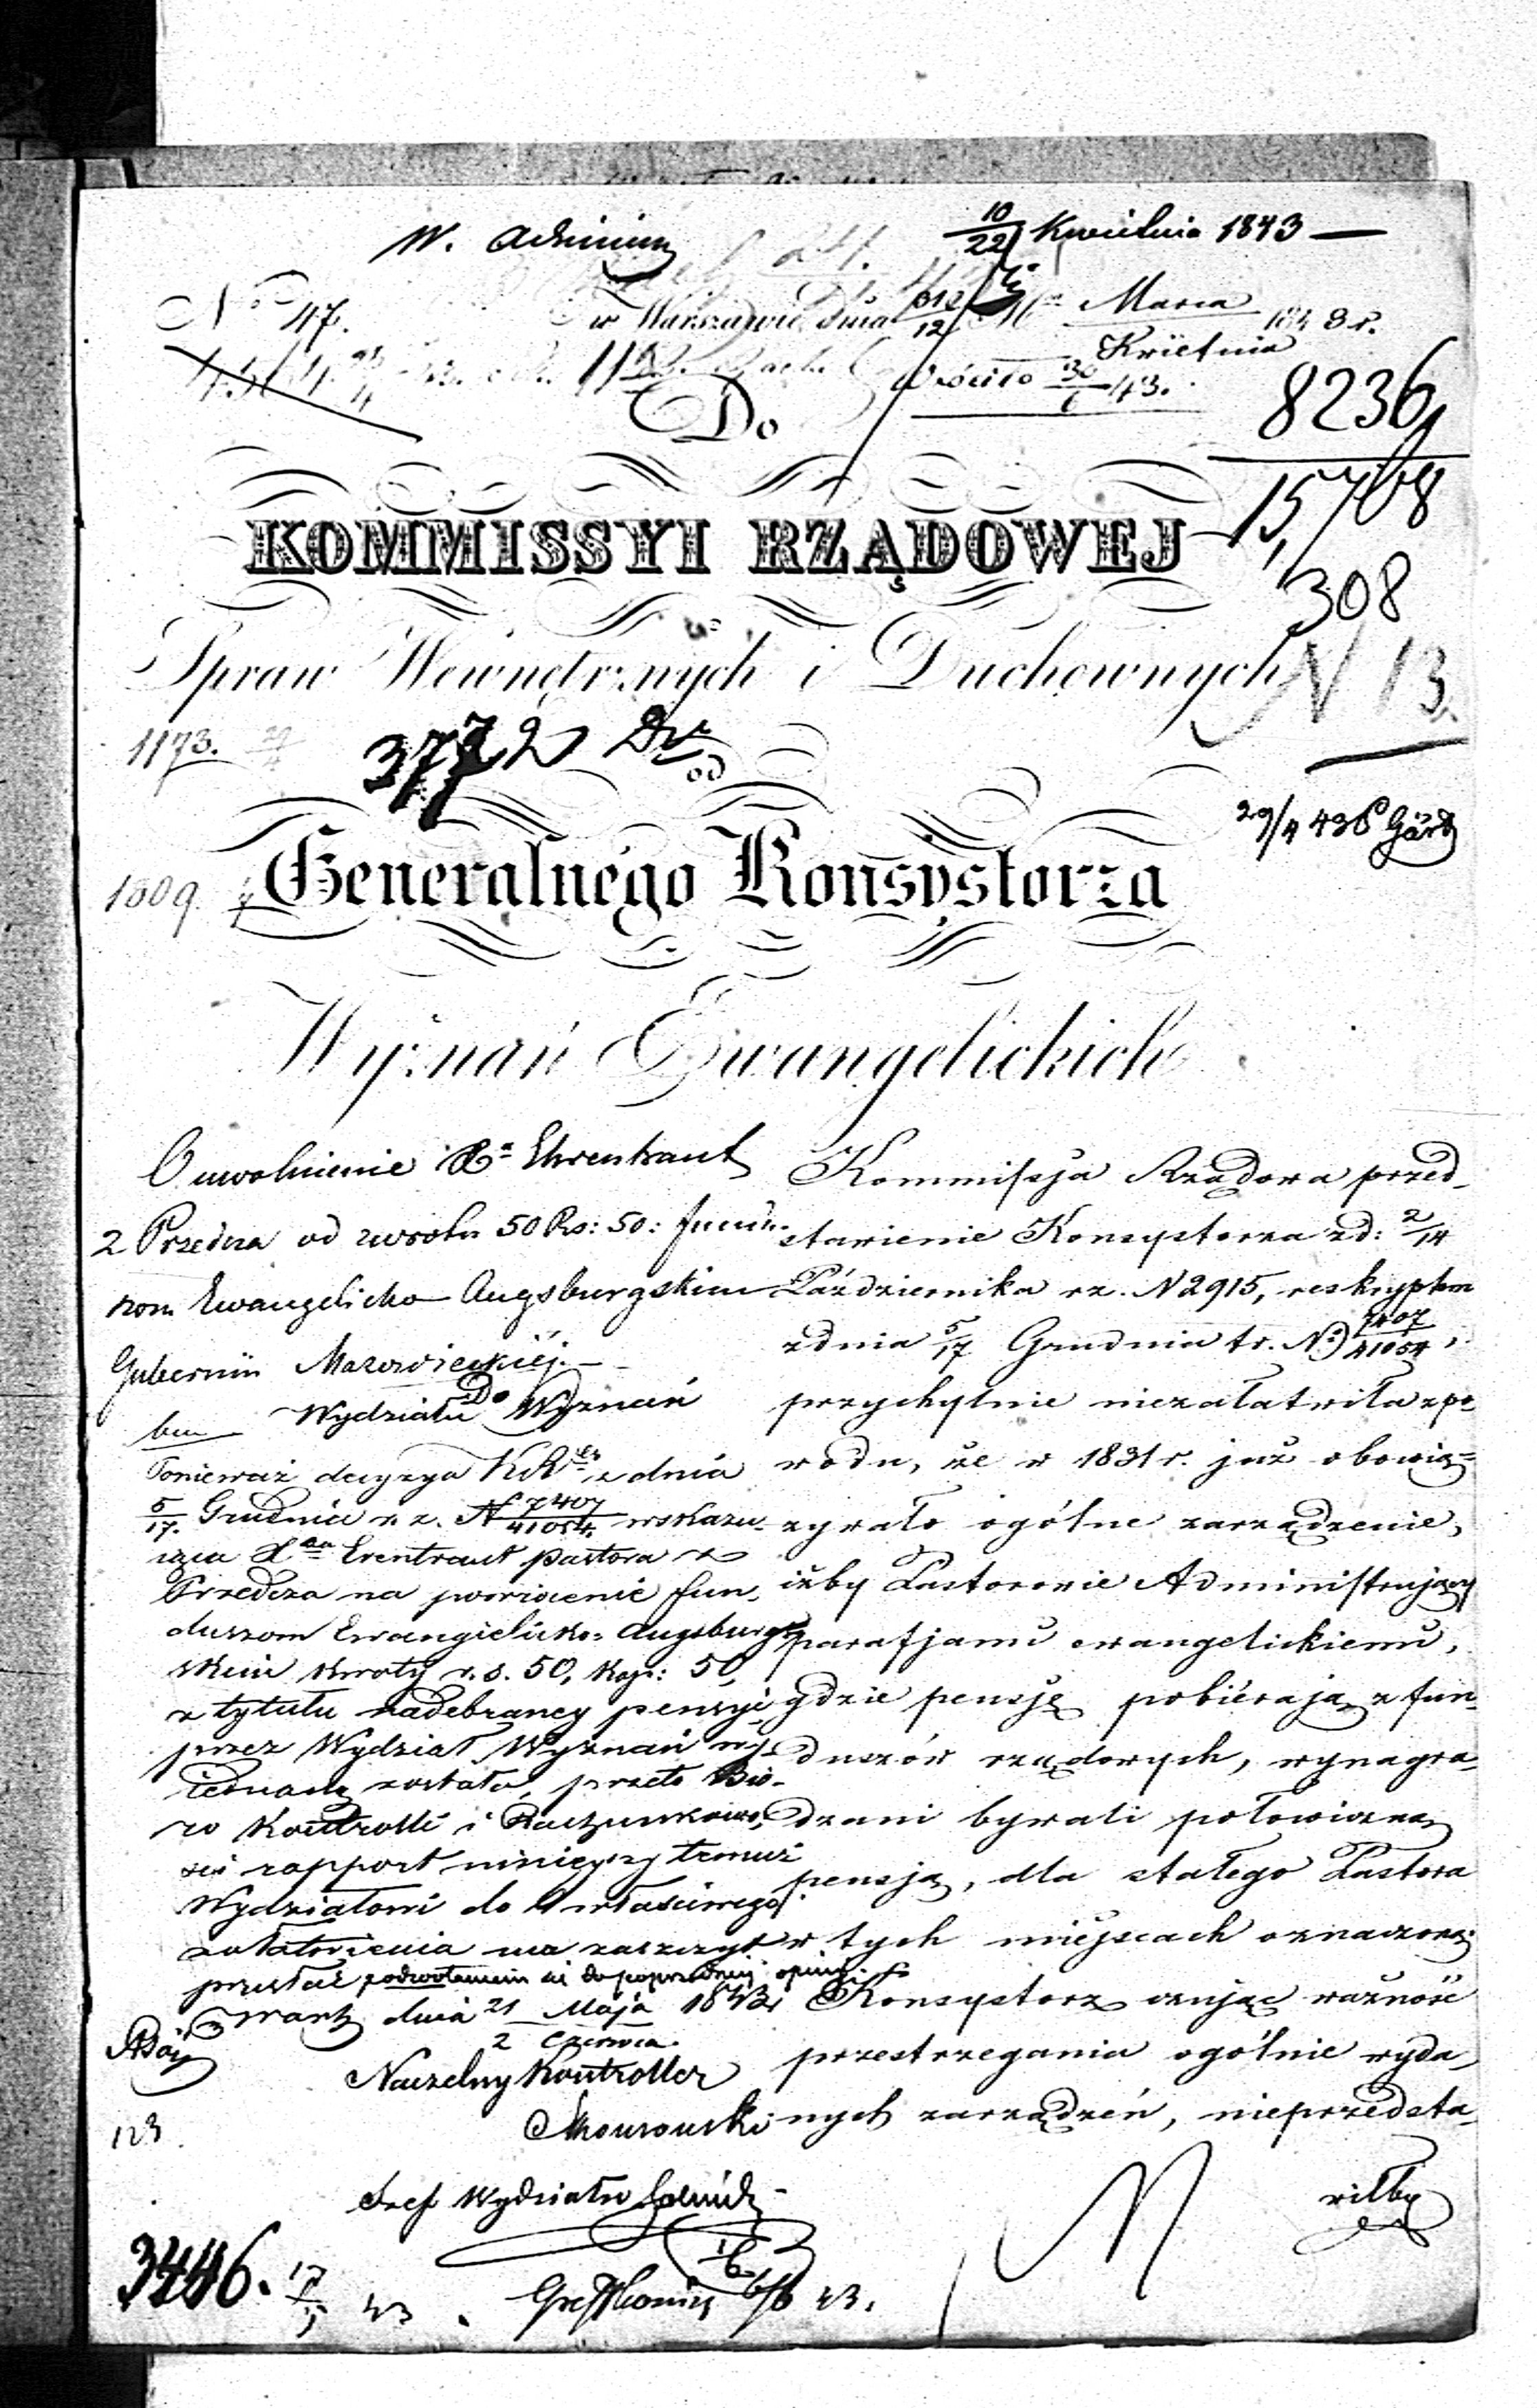 10/22 Kwietnia 1843 —
N° 47.
w Warszawie dnia 12 Marca 1843 r.
Kwietnia
43.
Do
8236
15,708
308
N 13.
KOMMISSYI RZĄDOWEJ
Spraw Wewnętrznych i Duchownych
1173.
3772
od
29/4 436
1809.
Generalnego Konsystorza
Wyznań Ewangelickich
O uwolnienie Xa Ehrentraut
z Przedcza od zwrotu 50 Rs: 50: fundu.
szom Ewangelicko Augsburgskim
Gubernii Mazowieckiéj.
Do
Wydziału Wyznań
Ponieważ decyzya z dnia
5/17. Grudnia r. z. N 7407/41054. wskazu-
jąca Xa Erentraut pastora z
Przedcza na powrócenie fun-
duszom Ewangielicko-Augsburg-
skim kwoty r. s. 50, kop: 50,
z tytułu nadebraney pensyi
przez Wydział Wyznań wy-
jednaną została, przeto Biu-
ro Kontrolli i Rachunkowo-
ści rapport ninieyszy temuż
Wydziałowi do właściwego
załatwienia ma zaszczyt
przesłać z odwołaniem się do poprzedniej opinii
dnia 21 Maja 1843
2 Czerwca.
Naczelny Kontroller
Szef Wydziału
123.
3446. 17/5 43.
6/6 43.
Kommissja Rządowa przed-
stawienie Konsystorza z d: 2/14
Października r z. N 2915, reskryptem
z dnia 5/17 Grudnia t r. N° 7407/41054,
przychylnie niezałatwiła z po-
wodu, że w 1831 r. już obowią-
zywało ogólne zarządzenie,
iżby Pastorowie Administrujący
parafjami ewangelickiemi,
gdzie pensję pobiérają z fun-
duszów rządowych, wynagra-
dzani bywali połowiczną
pensją, dla stałego Pastora
w tych miejscach oznaczoną.
Konsystorz czując ważność
przestrzegania ogólnie wyda-
nych zarządzeń, nieprzedsta-
wiłby